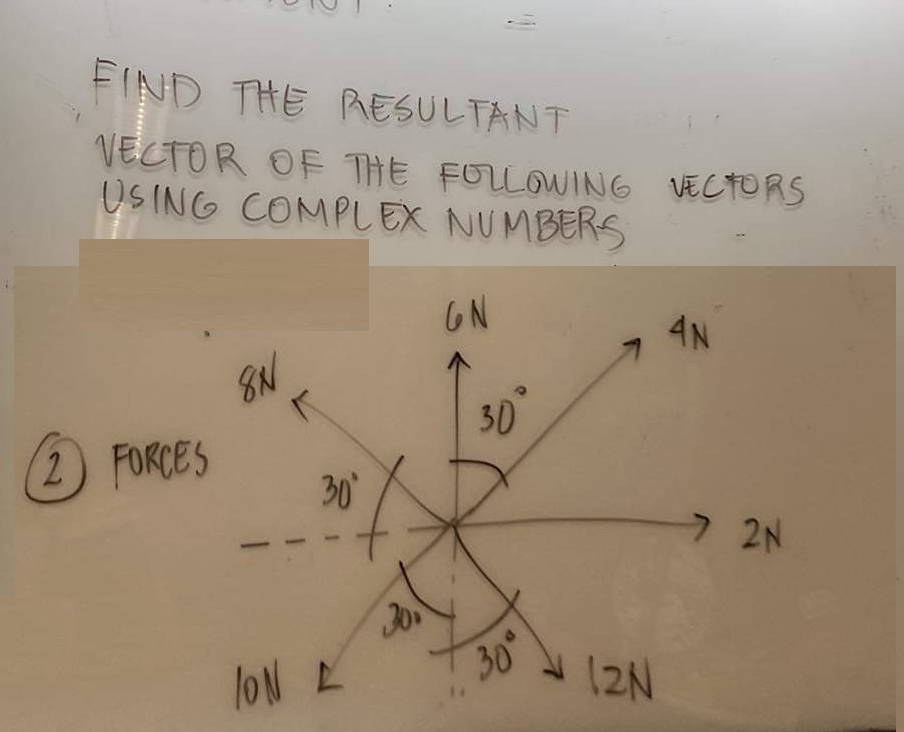 FIND THE RESULTANT
VECTOR OF THE FOLLOWING VECTORS
USING COMPLEX NUMBERS
6N
4N
8N
30°
2 FORCES
30°
2N
30°
30°
10N
12N